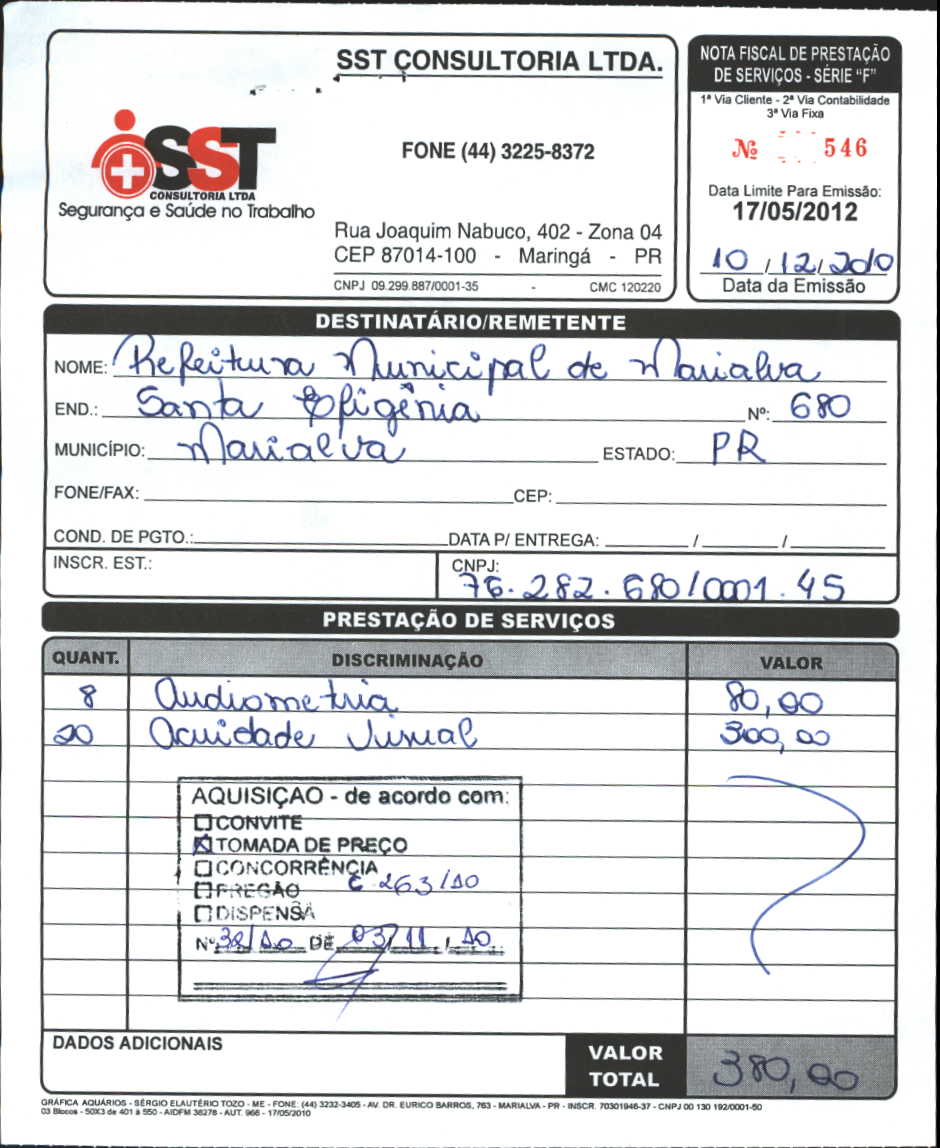 SST CONSULTORIA LTDA.
SST
CONSULTORIA LTDA
Segurança e Saúde no Trabalho
FONE (44) 3225-8372
Rua Joaquim Nabuco, 402 - Zona 04
CEP 87014-100 - Maringá - PR
CNPJ 09.299.887/0001-35 - CMC 120220
NOTA FISCAL DE PRESTAÇÃO
DE SERVIÇOS - SÉRIE “F”
1ª Via Cliente - 2ª Via Contabilidade
3ª Via Fixa
Nº 546
Data Limite Para Emissão:
17/05/2012
10/12/2010
Data da Emissão
DESTINATÁRIO/REMETENTE
NOME: Prefeitura Municipal de Marialva
END.: Santa Efigênia Nº: 680
MUNICÍPIO: Marialva ESTADO: PR
FONE/FAX: CEP:
COND. DE PGTO.: DATA P/ ENTREGA: / /
INSCR. EST.: CNPJ: 76.282.680/0001.45
PRESTAÇÃO DE SERVIÇOS
QUANT. DISCRIMINAÇÃO VALOR
8 Audiometria 80,00
20 Acuidade Visual 300,00
AQUISIÇÃO - de acordo com:
CONVITE
TOMADA DE PREÇO
CONCORRÊNCIA
PREGÃO C 263/10
DISPENSA
Nº 38/10 DE 03/11/10
DADOS ADICIONAIS
VALOR TOTAL 380,00
GRÁFICA AQUÁRIOS - SÉRGIO ELAUTÉRIO TOZO - ME - FONE: (44) 3232-3405 - AV. DR. EURICO BARROS, 763 - MARIALVA - PR - INSCR. 70301946-37 - CNPJ 00 130 192/0001-50
03 Blocos - 50X3 de 401 à 550 - AIDFM 36278 - AUT. 966 - 17/05/2010